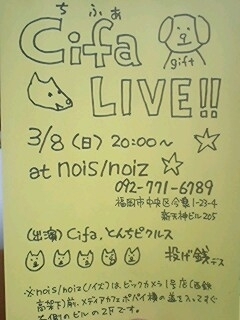 ちふぁ
Cifa
gift
LIVE!!
3/8 (日) 20:00〜
at nois/noiz
092-771-6789
福岡市中央区今泉1-23-4
新天神ビル205
(出演) Cifa, とんちピクルス
投げ銭デス
※nois/noiz(ノイズ)は、ビックカメラ1号店(西鉄
高架下)前、メディアカフェポパイ横の道を入ってすぐ
右側のビルの2Fです。